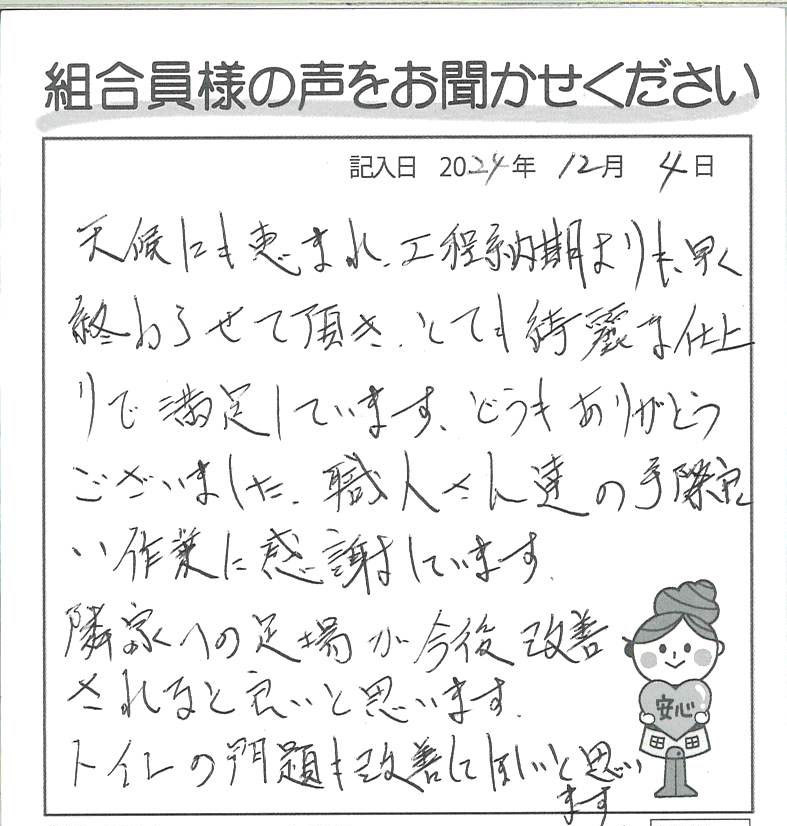 組合員様の声をお聞かせください
記入日 2024年 12月 4日
天候にも恵まれ、工程納期よりも、早く
終わらせて頂き、とても綺麗な仕上
りで満足しています、どうもありがとう
ございました、職人さん達の手際良
い作業に感謝しています、
隣家への足場が今後改善
されると良いと思います、
トイレの問題も改善してほしいと思い
ます
安心